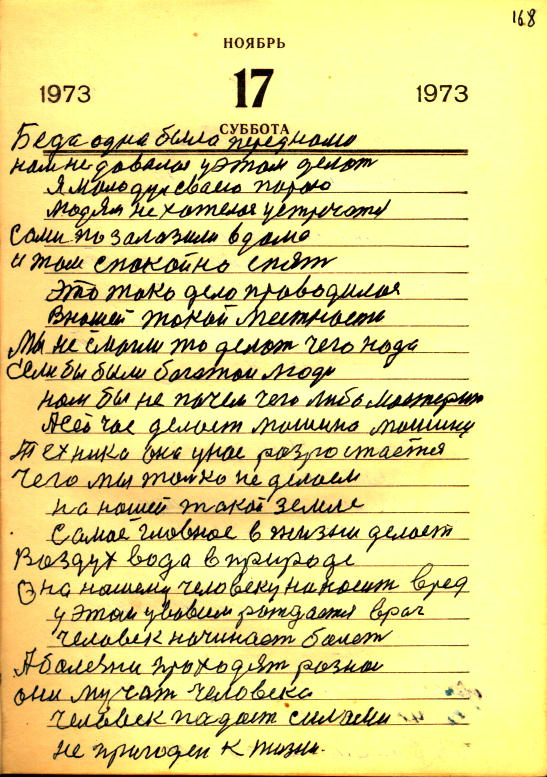 168
НОЯБРЬ
1973 17 1973
СУББОТА
Беда одна была передномо
нам не довалоя уэтом делот
Я молодух своею порою
людям не хотелоя устрочатя
Соми позалозили в домо
и том спокойно спят
Это тако дело проводилоя
Внашей такой местности
Мы не смогли то делот чего нода
если бы были богатои люди
нам бы не почем чего либо мастерит
Асей час делоет мошино мошину
Техника она унос розростается
Чего мы толко не делоем
на нашей такой земле
Самое гловное в жизни делоет
Воздух вода в природе
Она нашему человеку наносит вред
уэтом увовсем рождается враг
Человек начинает болет
А болезни проходят розноя
они мучат человека
человек падает силоеми
не пригоден к жизни.